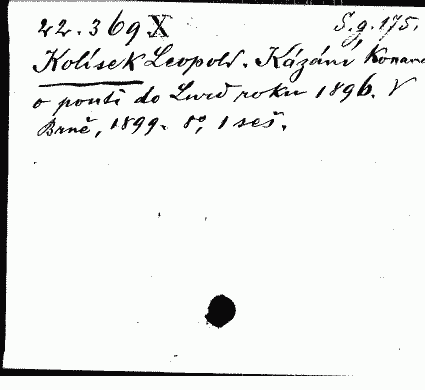 22.369 X S.g.175.
Kolísek Leopold. Kázání, konaná
o pouti do Lurd roku 1896. V
Brně, 1899. 8°, 1 seš.